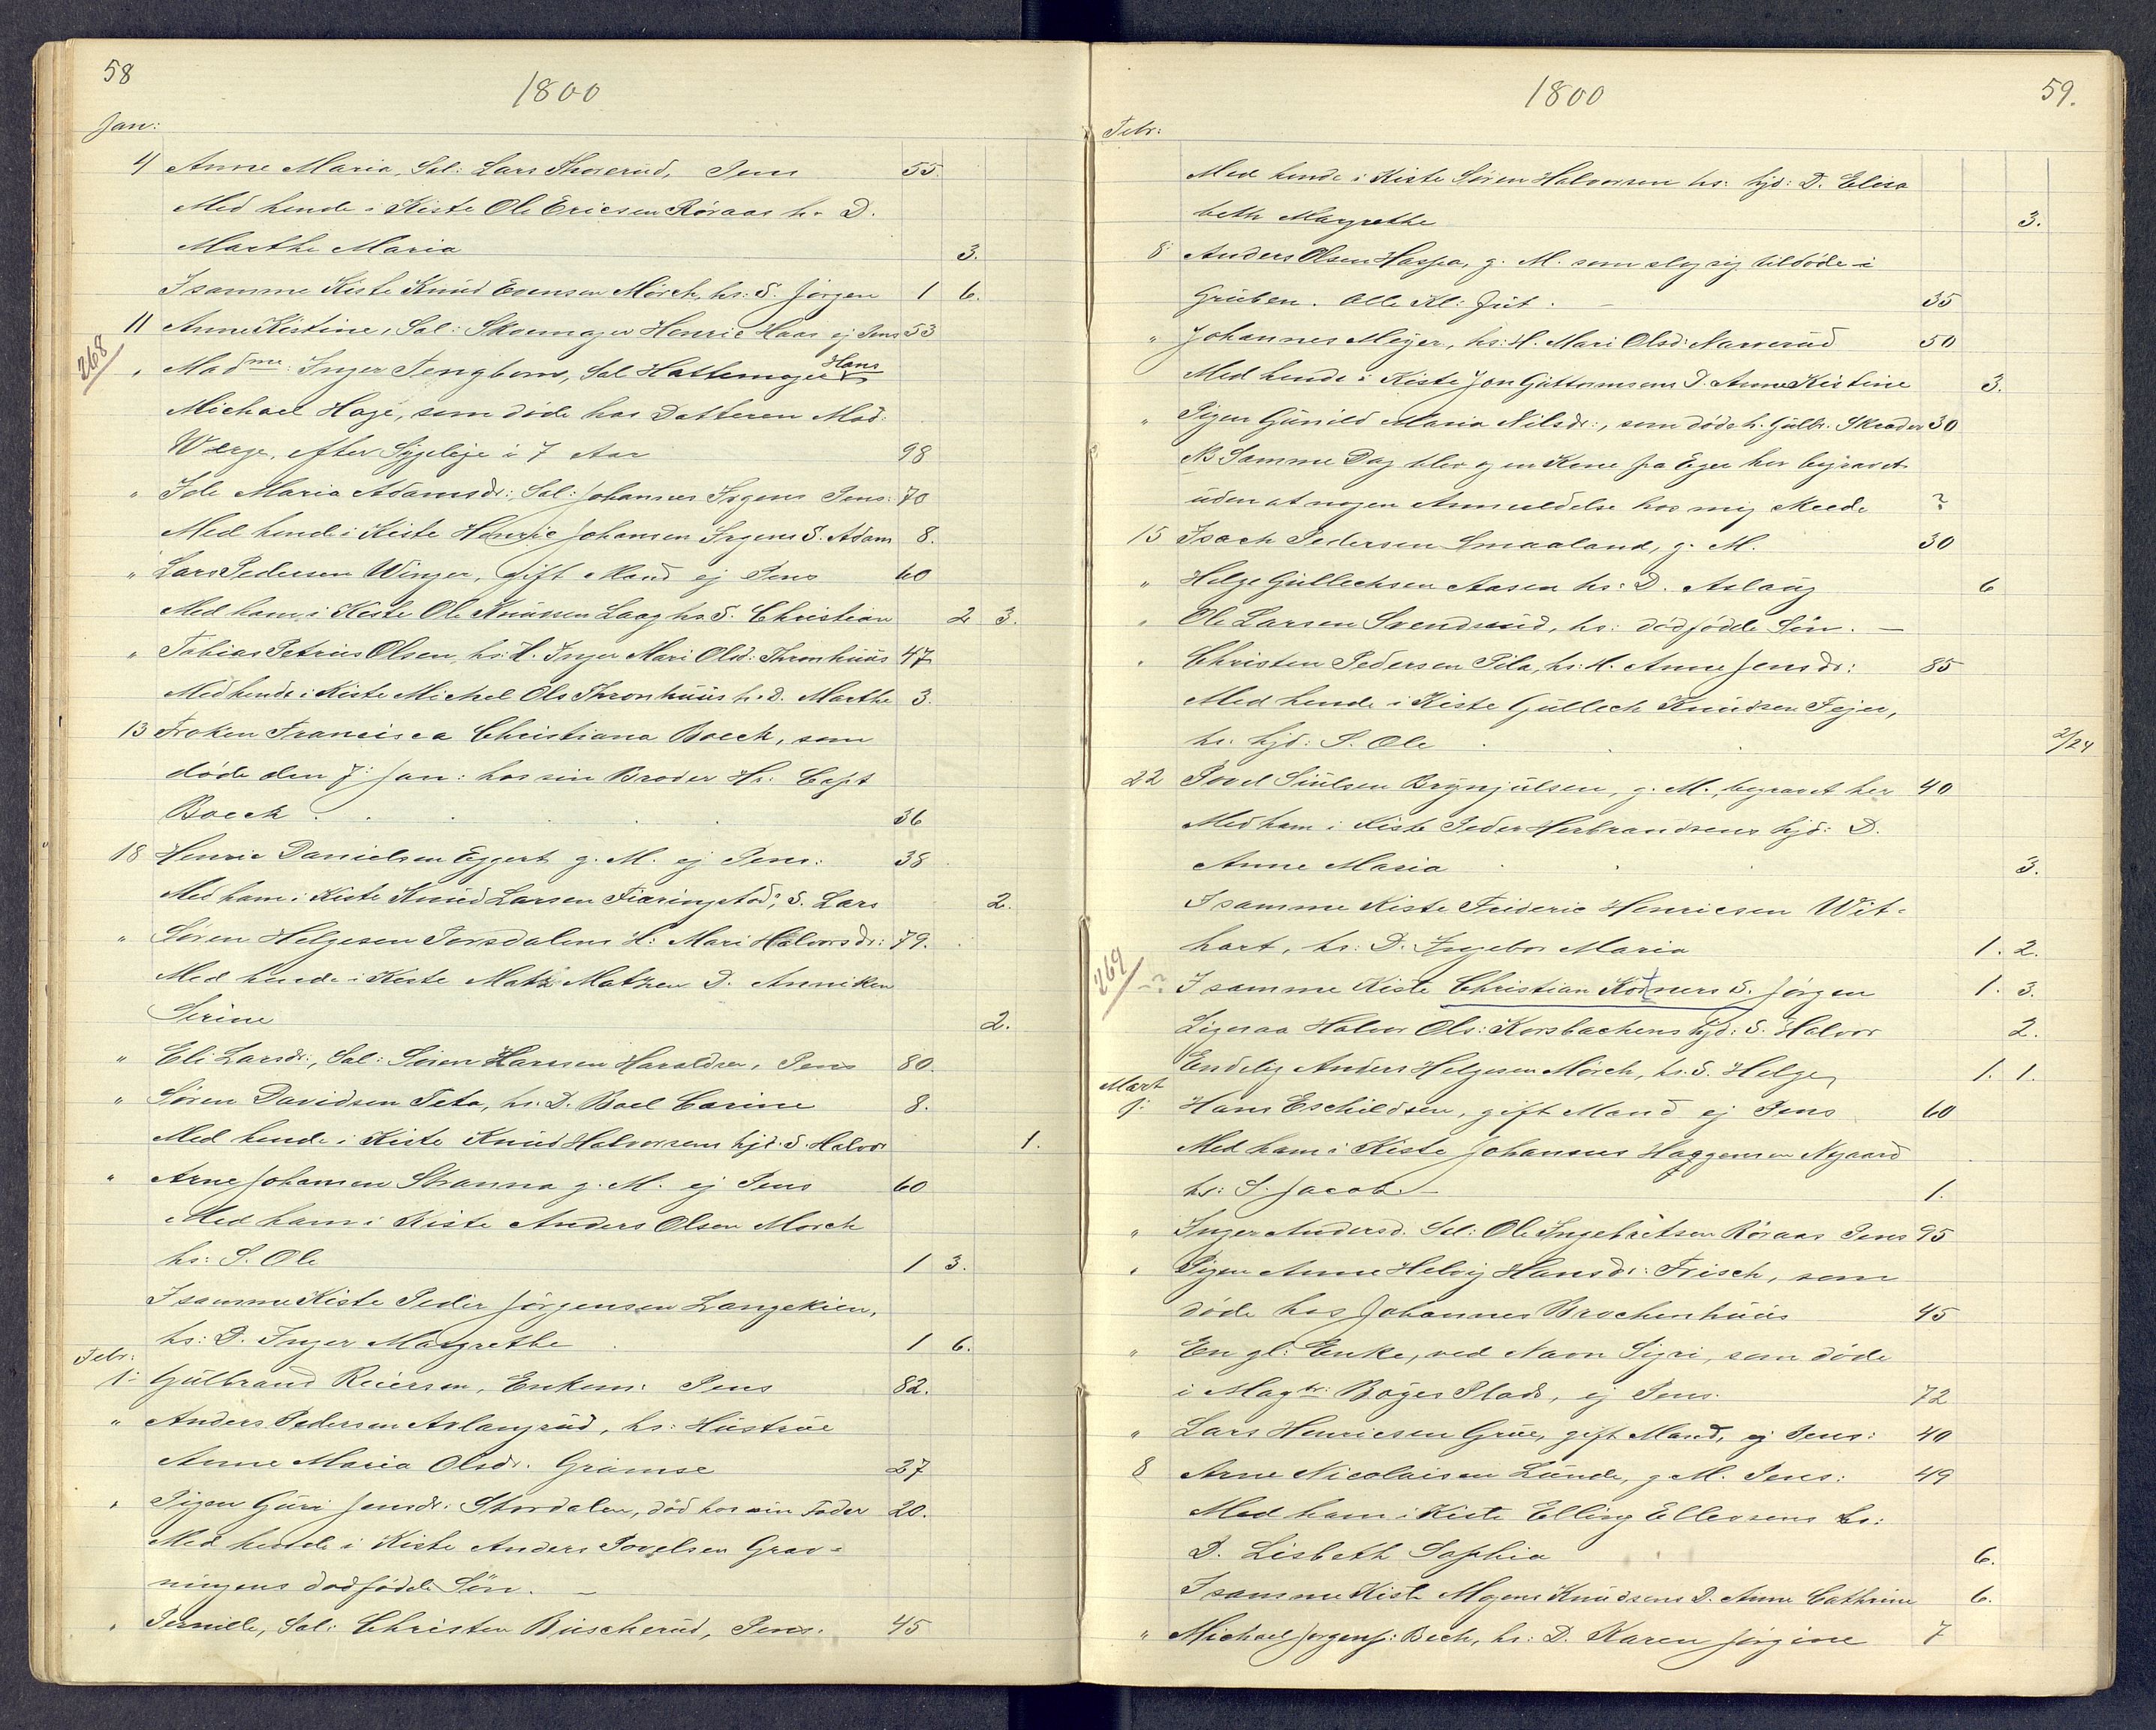 58
1800
Jan:
4 Anne Maria, Sal: Lars Thorerud, Pens 55.
Med hende i Kiste Ole Ericsen Röraas h. D.
Marthe Maria 3.
I samme Kiste Knud Evensen Mörch, hs: S. Jörgen 1 6.
11 Anne Kistine, Sal: Skoemager Henric Haas ej Pens 53
268
" Mad me: Inger Tengbom, Sal Hattemager Hans
Michael Hage, som döde hos Datteren Mad:
Werge, efter Sygeleje i 7 Aar 98
" Ide Maria Adamsdr:, Sal: Johannes Irgens Pens: 70
Med hende i Kiste Henric Johansen Irgens S. Adam 8.
" Lars Pedersen Winger, gift Mand ej Pens 60
Med ham i Kiste Ole Knudsen Laag hs. S. Christian 2 3.
" Tobias Petrus Olsen, hs: H. Inger Mari Olsd: Thronhuus 47
Med hende i Kiste Michel Ols Thronhuus h. D. Marthe 3.
13 Froken Francisca Christiana Boeck, som
döde den 7: Jan: hos sin Broder Hr: Capt
Boeck 36
18 Henric Danielsen Eggert g. M. ej Pens: 38
Med ham i Kiste Knud Larsen Fiaringstad, S. Lars 2.
" Sören Helgesen Torsdalens H: Mari Halvorsdr: 79.
Med hende i Kiste Matz Matzen D. Anniken
Sirine 2.
" Eli Larsdr:, Sal: Sören Hansen Haraldsen, Pens 80.
" Sören Davidsen Teta, hs. D. Boel Carine 8.
Med hende i Kiste Knud Halvorsens hjd. S. Halvor 1.
" Arne Johansen Stranna g. M. ej Pens 60
Med ham i Kiste Anders Olsen Morch
hs: S. Ole 1 3.
I samme Kiste Peder Jörgensen Langekien,
hs: D. Inger Margrethe 1 6.
Febr:
1: Gulbrand Reiersen, Enkem: Pens 82.
" Anders Pedersen Aslangrud, hs: Hustrue
Anne Maria Olsdr. Gramse 27
" Pigen Guri Jensdr: Stordalen, död hos sin Fader 20.
Med hende i Kiste Anders Povelsen Grav-
ningens dodfödde Sön. —
" Pernille, Sal: Christen Buscherud, Pens. 45
1800
59.
Febr:
Med hende i Kiste Sören Halvorsen hs: hjd: D. Elisa
beth Magrethe 3.
8 Anders Olsen Haspa, g. M. som slog sig tildöde i
Gruben. Olle Kl: Jut. — 35
" Johannes Meyer, hs: H. Mari Olsd: Narverud 50
Med hende i Kiste Jon Guttormsens D. Anne Kistine 3.
" Pigen Gunild Maria Nilsdr:, som döde h. Gulbr. Skræder 30
NB Samme Dag blev og en Kone fra Eger her begravet
uden at nogen Anmeldelse hos mig skeede ?
15 Isach Pedersen Smaaland, g. M. 30
" Helge Gullechsen Aasen hs: D. Aslaug 6
" Ole Larsen Svendsrud, hs: dödfödde Sön. —
" Christen Pedersen Pila, hs: H. Anne Jensdr: 85
Med hende i Kiste Gullech Knudsen Fejer,
hs. hjd: S. Ole 2/24
22 Povel Siulsen Brynjulsen, g. M., begravet her 40
Med ham i Kiste Peder Herbrandsens hjd: D.
Anne Maria 3.
I samme Kiste Frideric Henricsen Wit-
hart, hs: D. Ingebor Maria 1. 2.
269
I samme Kiste Christian Kotners S. Jörgen 1. 3.
Ligesaa Halvor Ols: Korsbachens hjd: S. Halvor 2.
Endelig Anders Helgesen Mörch, hs. S. Helge 1. 1.
Mart
1: Hans Eschildsen, gift Mand ej Pens 60
Med ham i Kiste Johannes Haggensen Nygaard
hs: S. Jacob — 1.
" Inger Andersd. Sal: Ole Ingebretsen Röraas Pens 95
" Pigen Anne Helvig Hansdr: Frisch, som
döde hos Johannes Brochenhuus 45
" En gl: Enke, ved Navn Sigri, som döde
i Magtr: Böges Plads, ej Pens. 72
" Lars Henricsen Grue, gift Mand, ej Pens: 40
8 Arne Nicolaisen Lunde, g M. Pens: 49
Med ham i Kiste Elling Ellevsens hs:
D. Lisbeth Sophia 6.
I samme Kiste Mogens Knudsens D. Anne Cathrine 6.
" Michael Jörgens: Bech, hs: D. Karen Jörgine 7